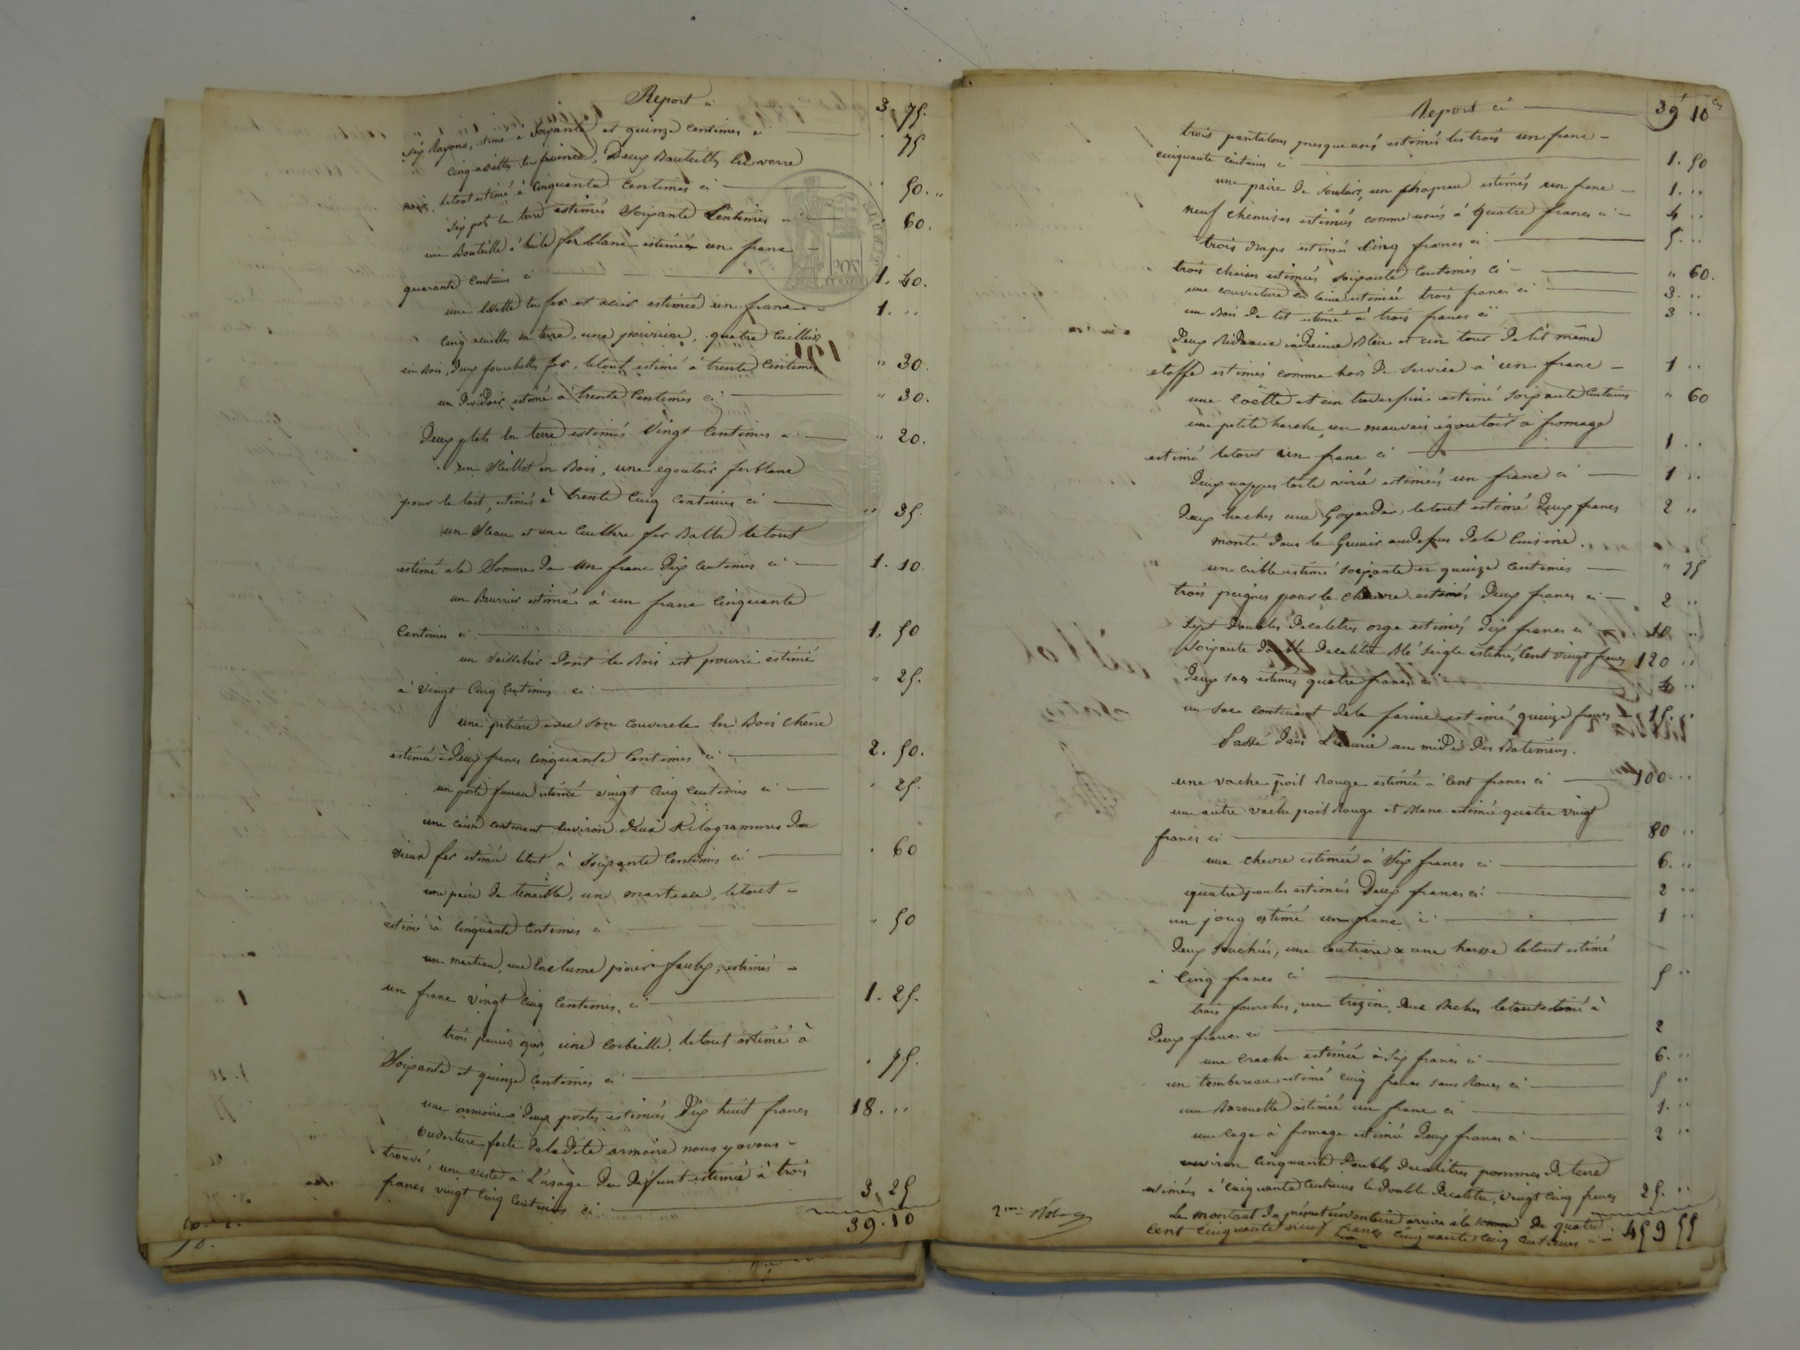 Report ci 3. 75.
Six Rayons, estimé à Soixante et quinze Centimes ci 75
cinq assiettes en faience, Deux Bouteilles en verre
noir, le tout estimé à Cinquante Centimes ci 50. "
Six pot en terre estimés Soixante Centimes ci 60.
une Bouteille à huile fer blanc estimée un franc
quarante Centimes ci 1. 40.
une en fer et estimée un franc 1. "
cinq écuelles en terre, une, quatre Cuillers
en Bois, Deux fourchettes fer, le tout estimé à trente Centimes " 30.
un Dévidoir estimé à trente Centimes ci " 30.
Deux plats en terre estimés Vingt Centimes " 20.
un en Bois, une egoutoir ferblanc
pour le tout, estimés à trente Cinq Centimes ci " 35.
un Sceau et une Cuillere fer Battu le tout
estimé a la Somme De un franc Dix Centimes ci 1. 10.
un Beurrier estimé à un franc Cinquante
Centimes ci 1. 50
un Vaisselier Dont le Bois est pourri estimé
à Vingt Cinq Centimes ci " 25.
une pétrière avec son couvercle en Bois Chêne
estimée à Deux francs Cinquante Centimes ci 2. 50.
un porte estimé vingt Cinq Centimes ci " 25.
une caisse contenant Environ Deux Kilogrammes De
vieux fer estimée le tout à Soixante Centimes ci 60
une paire De tenaille, un marteau, le tout
estimé à Cinquante Centimes ci " 50
un marteau, une Enclume pour faulx, estimés
un franc Vingt Cinq Centimes, ci 1. 25.
trois paniers, une Corbeille, le tout estimé à
Soixante et quinze Centimes ci 75.
une armoire à Deux portes estimée Dix huit francs 18. "
Ouverture faite de la Dite armoire nous y avons
trouvé, une veste à L'usage Du Défunt estimée à trois
francs vingt Cinq Centimes ci 3. 25
39. 10
Report ci 39f 10c
trois pantalons presque usés estimés les trois un franc
cinquante centimes ci 1. 50
une paire De Souliers, un chapeau estimés un franc 1. "
neuf chemises estimées comme usées à quatre francs ci 4 "
trois draps estimés Cinq francs ci 5. "
trois chaises estimées Soixante Centimes ci " 60.
une couverture en laine estimée trois francs ci 3. "
un Bois De lit estimé à trois francs ci 3 "
Deux Rideaux indienne Bleu et un tour De lit même
etoffe estimés comme hors De Service à un franc 1 "
une Coëtte et un traversin estimé Soixante Centimes " 60
une petite hache, un mauvais égoutoir à fromage
estimé le tout un franc ci 1 "
Deux nappes toile estimées un franc ci 1 "
Deux haches une Goyarde, le tout estimé Deux francs 2 "
monté Dans le Grenier au dessus De la Cuisine.
un crible estimé Soixante et quinze Centimes " 75
trois peignes pour le Chanvre estimés Deux francs ci 2 "
Sept Doubles Decalitres orge estimés Dix francs ci 10. "
Soixante Decalitre Blé Seigle estimé, Cent vingt francs 120 "
Deux sacs estimés quatre francs ci 4 "
un Sac contenant De la farine estimé quinze francs 15. "
Passé Dans L'Ecurie au midi Des Batiments.
une vache poil Rouge estimée à Cent francs ci 100 "
un autre vache poil Rouge et Blanc estimée quatre vingt
francs ci 80 "
une chevre estimée à Six francs ci 6. "
quatre poules estimées Deux francs ci 2 "
un joug estimé un franc ci 1 "
Deux, une coutriere & une herse le tout estimé
à Cinq francs ci 5 "
trois fourches, un, Deux le tout estimé à
Deux francs ci 2
une estimée à Six francs ci 6. "
un tombereau estimé Cinq francs sans Roues ci 5 "
un Barouette estimée un franc ci 1. "
une Cage à fromage estimée Deux francs ci 2 "
environ Cinquante Doubles Decalitres pommes De terre
estimées à Cinquante Centimes le Double Decalitre, vingt Cinq francs 25. "
Le montant Du présent inventaire arrive à la Somme De quatre
cent cinquante neuf francs Cinquante Cinq Centimes ci 459 55